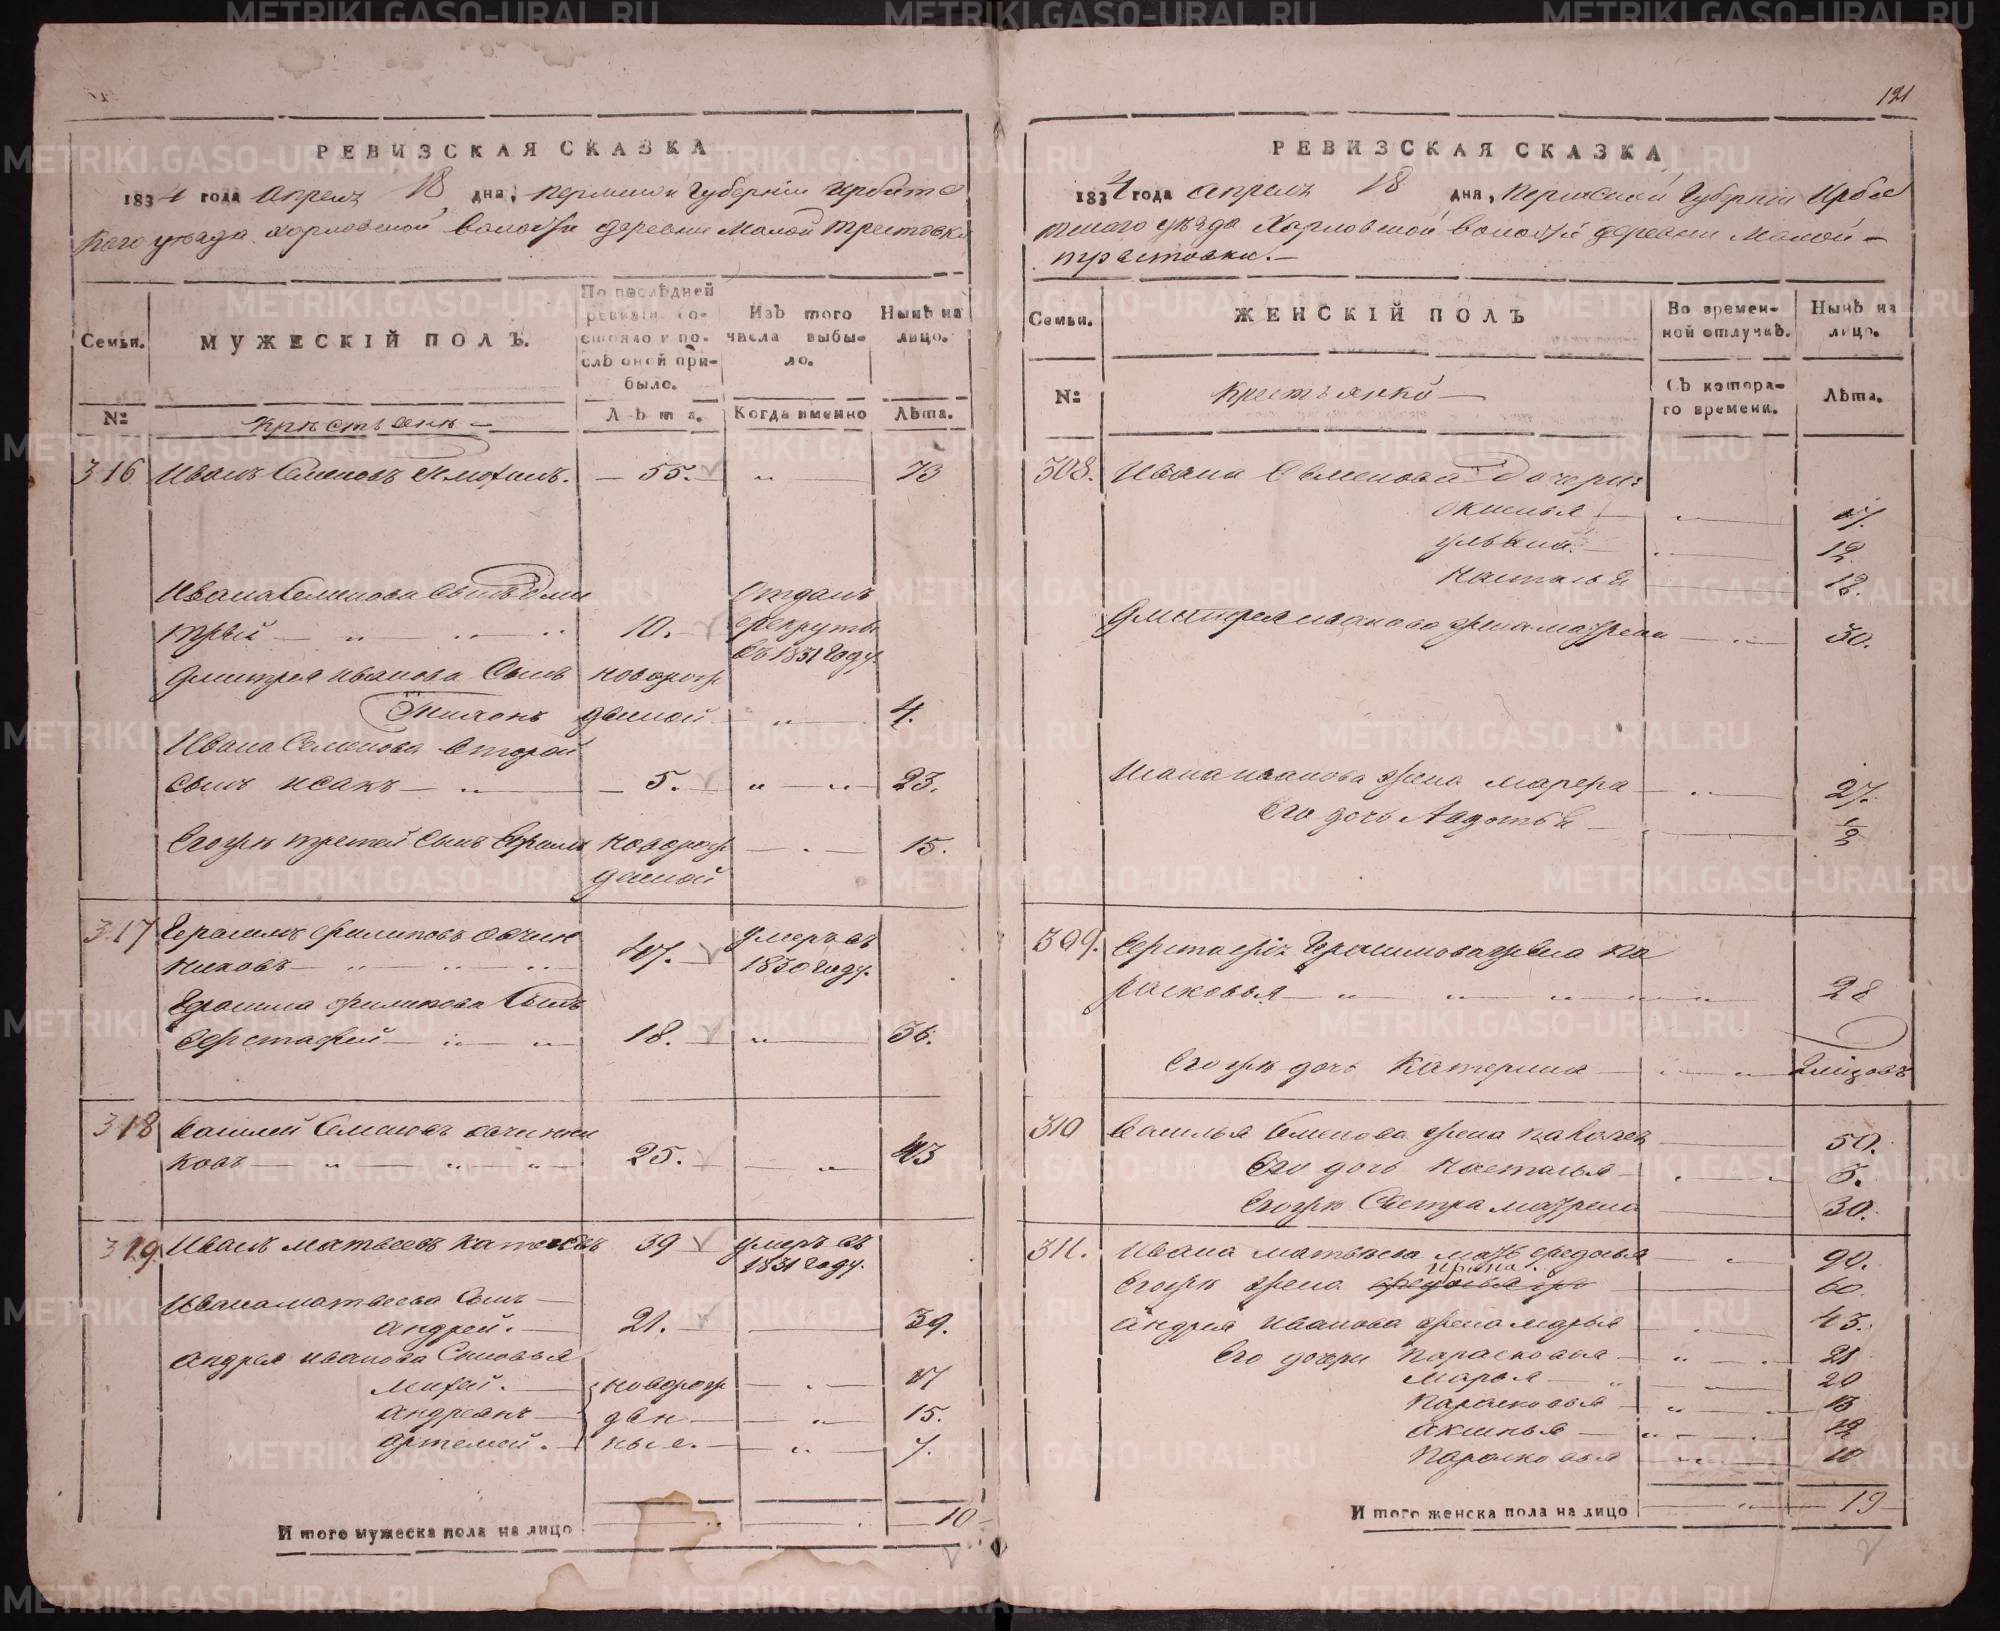 121
РЕВИЗСКАЯ СКАЗКА
1834 года апреля 18 дня, пермской Губернiи Ирбитс
каго уезда харловской волости деревни Малой трестовки
Семьи.
МУЖЕСКІЙ ПОЛЪ.
По послѣдней ревизіи состояло и послѣ оной прибыло.
Изъ того числа выбыло.
Нынѣ на лицо.
№
крестьяне
Лѣта.
Когда именно
Лѣта.
316 Иванъ Семеновъ — 55. „ 73
Ивана Семенова сынъ Дми Отданъ
трей — „ 10. — в рекруты
въ 1831 году.
Дмитрея иванова Сынъ новорож
Тихонъ деной — „ — 4.
Ивана Семенова второй
сынъ исакъ — „ — 5. „ — „ 23.
Егожъ третей сынъ новорож — 15.
деной
317 Герасимъ филиповъ овчин 47. умеръ въ
никовъ — „ 1830 году.
Герасима филипова Сынъ
Ефстафей — „ 18. — „ — 36.
318 Василей Семеновъ овчинни
ковъ — „ 25. — „ 43
319. Иванъ матвеевъ 39 умеръ въ
1831 году.
Ивана матвеева Сынъ —
андрей. — 21. — 39.
андрея иванова Сыновья
михей. — новорож — 17
андреянъ — ден — „ 15.
артемей. — ные. — „ — 7.
И того мужеска пола на лицо — 10
РЕВИЗСКАЯ СКАЗКА
1834 года апреля 18 дня, пермской Губернiи Ирби
тскаго уезда Харловской волости деревни Малой
трестовки. —
Семьи.
ЖЕНСКІЙ ПОЛЪ
Во временной отлучкѣ.
Нынѣ на лицо.
№
Крестьянки —
Съ котораго времени.
Лѣта.
308. Ивана Семенова Дочери:
Оксинья — „ — 17.
ульяна. — 12.
Настасья 12.
Дмитрея иванова жена матрена — „ 30.
Исака иванова жена — „ — 27.
Его дочь Авдотья — 1/2
309. Ефстафія Герасимова жена Па
расковья — „ „ „ 28
Егожъ дочь Катерина — „ 2 месцовъ
310 Василья Семенова жена — 50.
Его дочь настасья — 5.
Егожъ Сестра матрена — 30.
311. Ивана матвеева мать федосья — „ 90.
Ирина
Егожъ жена — 60.
Андрея иванова жена марья — 43.
Его дочери парасковья — „ — 21
Марья — „ — 20
Парасковья — „ — 13
акинья — „ — 12
Парасковья — „ — 10
И того женска пола на лицо — „ — 19
METRIKI.GASO-URAL.RU